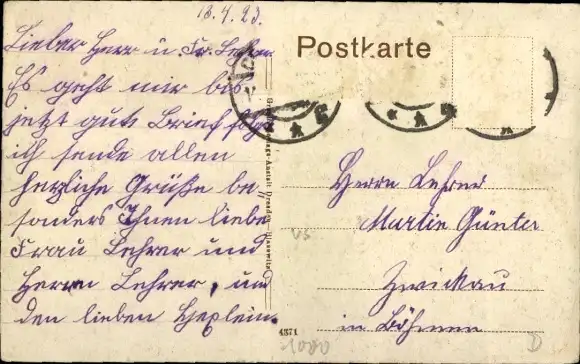 13.4.23.
Lieber Herr u. Fr. Lehrer.
Es geht mir bis
jetzt gut. Brief folgt
ich sende allen
herzliche Grüße be-
sonders Ihnen liebe
Frau Lehrer und
Herrn Lehrer, und
den lieben
Postkarte
Herrn Lehrer
Martin Günter
Zwickau
in Böhmen
4371
1000
VS
D